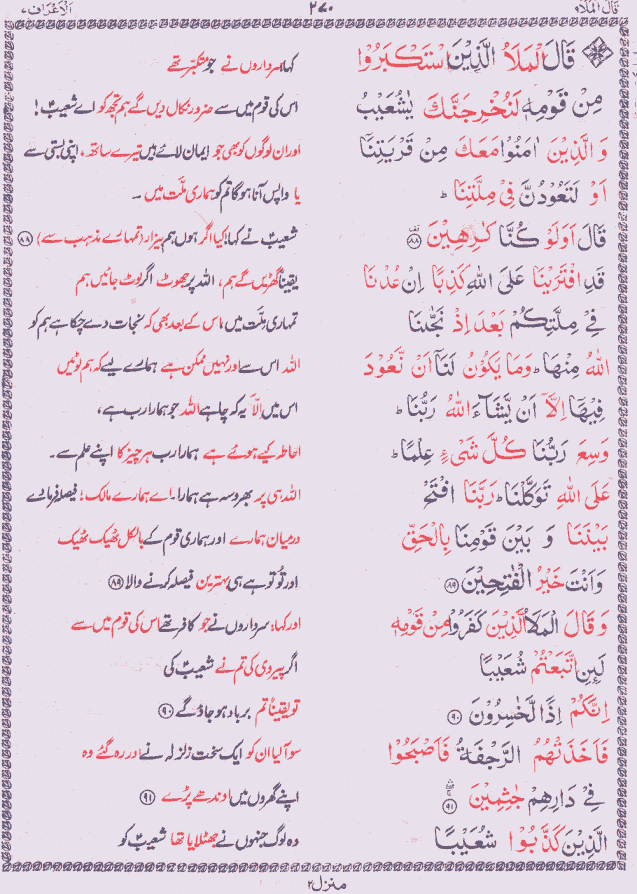 قَالَ الْمَلَاُ ٩
٢٧٠
اَلْاَعْرَاف ٧
قَالَ الْمَلَاُ الَّذِيْنَ اسْتَكْبَرُوْا
کہا سرداروں نے جو متکبّر تھے
مِنْ قَوْمِهٖ لَنُخْرِجَنَّكَ يٰشُعَيْبُ
اس کی قوم میں سے ضرور نکال دیں گے ہم تجھ کو اے شعیبؑ !
وَالَّذِيْنَ اٰمَنُوْا مَعَكَ مِنْ قَرْيَتِنَاۤ
اور ان لوگوں کو بھی جو ایمان لائے ہیں تیرے ساتھ، اپنی بستی سے
اَوْ لَتَعُوْدُنَّ فِيْ مِلَّتِنَا ؕ
یا واپس آنا ہوگا تم کو ہماری ملّت میں ۔
قَالَ اَوَلَوْ كُنَّا كٰرِهِيْنَ ﴿۸۸﴾
شعیبؑ نے کہا: کیا اگر ہوں ہم بیزار (تمہارے مذہب سے) ﴿۸۸﴾
قَدِ افْتَرَيْنَا عَلَى اللّٰهِ كَذِبًا اِنْ عُدْنَا
یقیناً گھڑیں گے ہم، اللہ پر جھوٹ اگر لوٹ جائیں ہم
فِيْ مِلَّتِكُمْ بَعْدَ اِذْ نَجّٰىنَا
تمہاری ملّت میں اس کے بعد بھی کہ نجات دے چکا ہے ہم کو
اللّٰهُ مِنْهَا ؕ وَمَا يَكُوْنُ لَنَاۤ اَنْ نَّعُوْدَ
اللہ اس سے اور نہیں ممکن ہے ہمارے لیے کہ ہم لوٹیں
فِيْهَاۤ اِلَّاۤ اَنْ يَّشَآءَ اللّٰهُ رَبُّنَا ؕ
اس میں اِلّا یہ کہ چاہے اللہ جو ہمارا رب ہے،
وَسِعَ رَبُّنَا كُلَّ شَيْءٍ عِلْمًا ؕ
احاطہ کیے ہوئے ہے ہمارا رب ہر چیز کا اپنے علم سے۔
عَلَى اللّٰهِ تَوَكَّلْنَا ؕ رَبَّنَا افْتَحْ
اللہ ہی پر بھروسہ ہے ہمارا۔ اے ہمارے مالک! فیصلہ فرما دے
بَيْنَنَا وَ بَيْنَ قَوْمِنَا بِالْحَقِّ
درمیان ہمارے اور ہماری قوم کے بالکل ٹھیک ٹھیک
وَاَنْتَ خَيْرُ الْفٰتِحِيْنَ ﴿۸۹﴾
اور تُو تو ہے ہی بہترین فیصلہ کرنے والا ﴿۸۹﴾
وَقَالَ الْمَلَاُ الَّذِيْنَ كَفَرُوْا مِنْ قَوْمِهٖ
اور کہا: سرداروں نے جو کافر تھے اس کی قوم میں سے
لَىِٕنِ اتَّبَعْتُمْ شُعَيْبًا
اگر پیروی کی تم نے شعیبؑ کی
اِنَّكُمْ اِذًا لَّخٰسِرُوْنَ ﴿۹۰﴾
تو یقیناً تم برباد ہو جاؤ گے ﴿۹۰﴾
فَاَخَذَتْهُمُ الرَّجْفَةُ فَاَصْبَحُوْا
سو آ لیا ان کو ایک سخت زلزلہ نے اور رہ گئے وہ
فِيْ دَارِهِمْ جٰثِمِيْنَ ﴿۹۱﴾
اپنے گھروں میں اوندھے پڑے ﴿۹۱﴾
الَّذِيْنَ كَذَّبُوْا شُعَيْبًا
وہ لوگ جنہوں نے جھٹلایا تھا شعیبؑ کو
منزل ٢